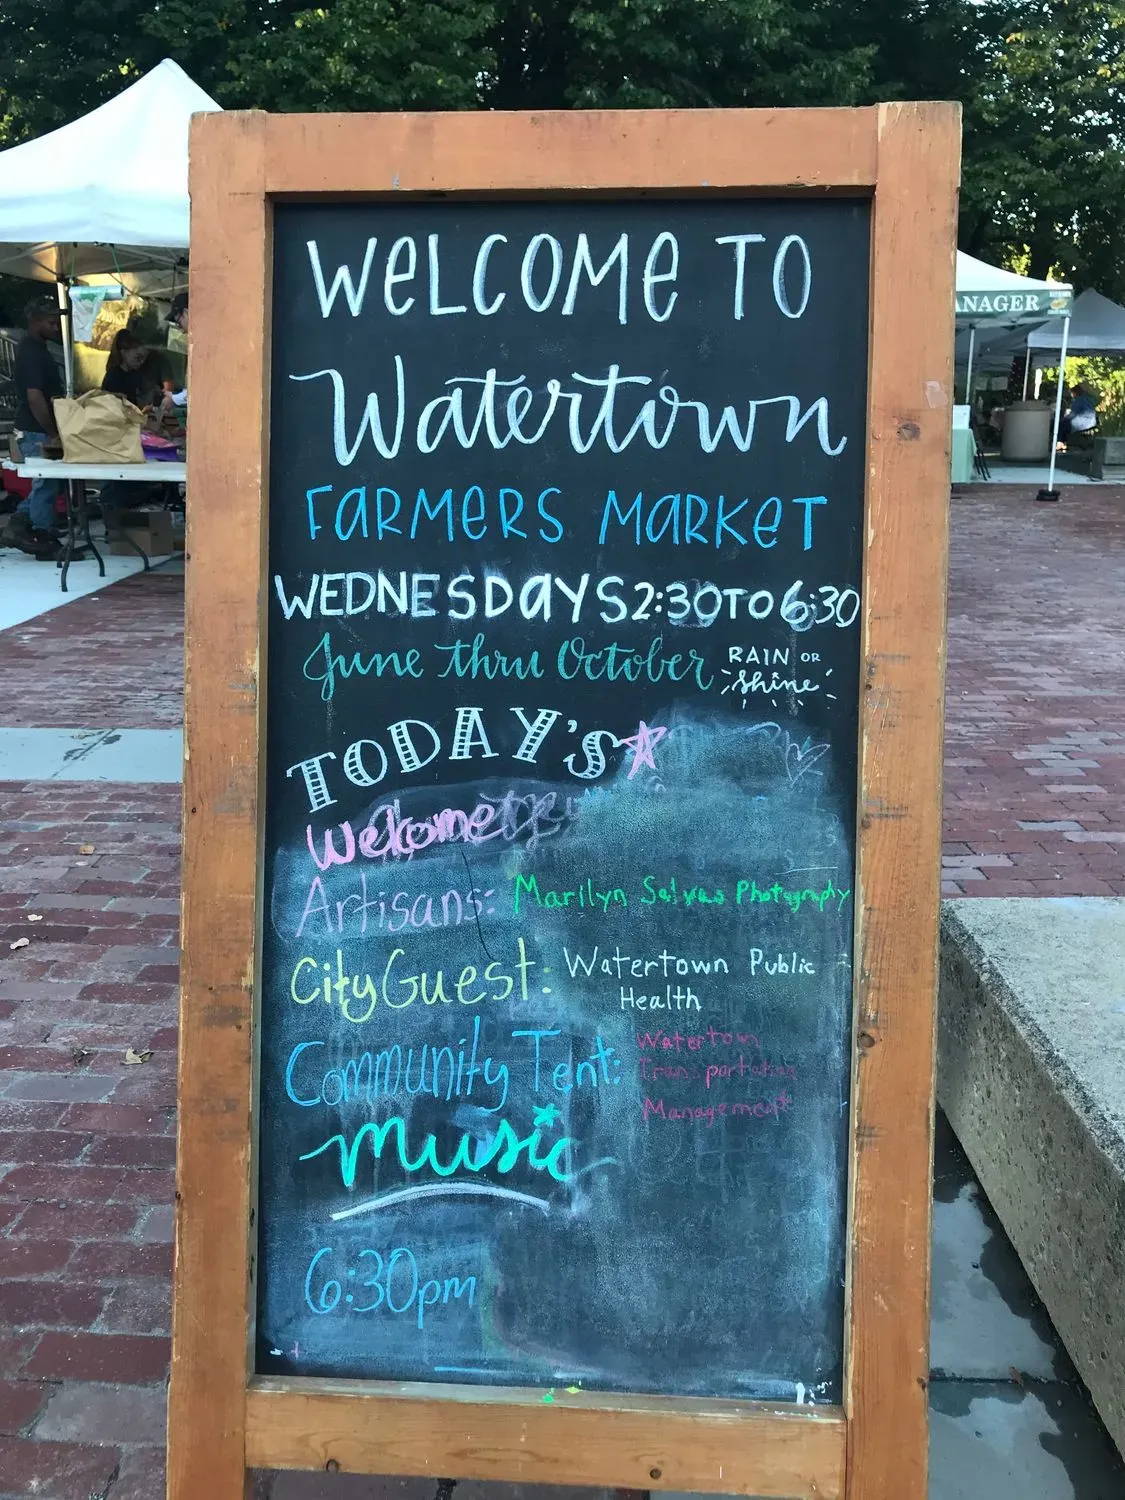 WELCOME TO
Watertown
FARMERS MARKET
WEDNESDAYS 2:30 TO 6:30
June thru October RAIN OR
shine
TODAY'S
Welcome
Artisans: Marilyn Photography
City Guest: Watertown Public
Health
Community Tent: Watertown
Transportation
Management
music
6:30pm
ANAGER